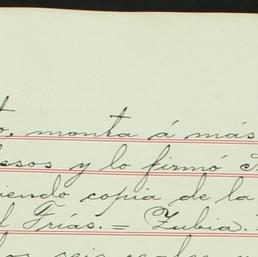 to, monta á más
essos y lo firmó
iendo copia de la
l Frías. = Zubia.